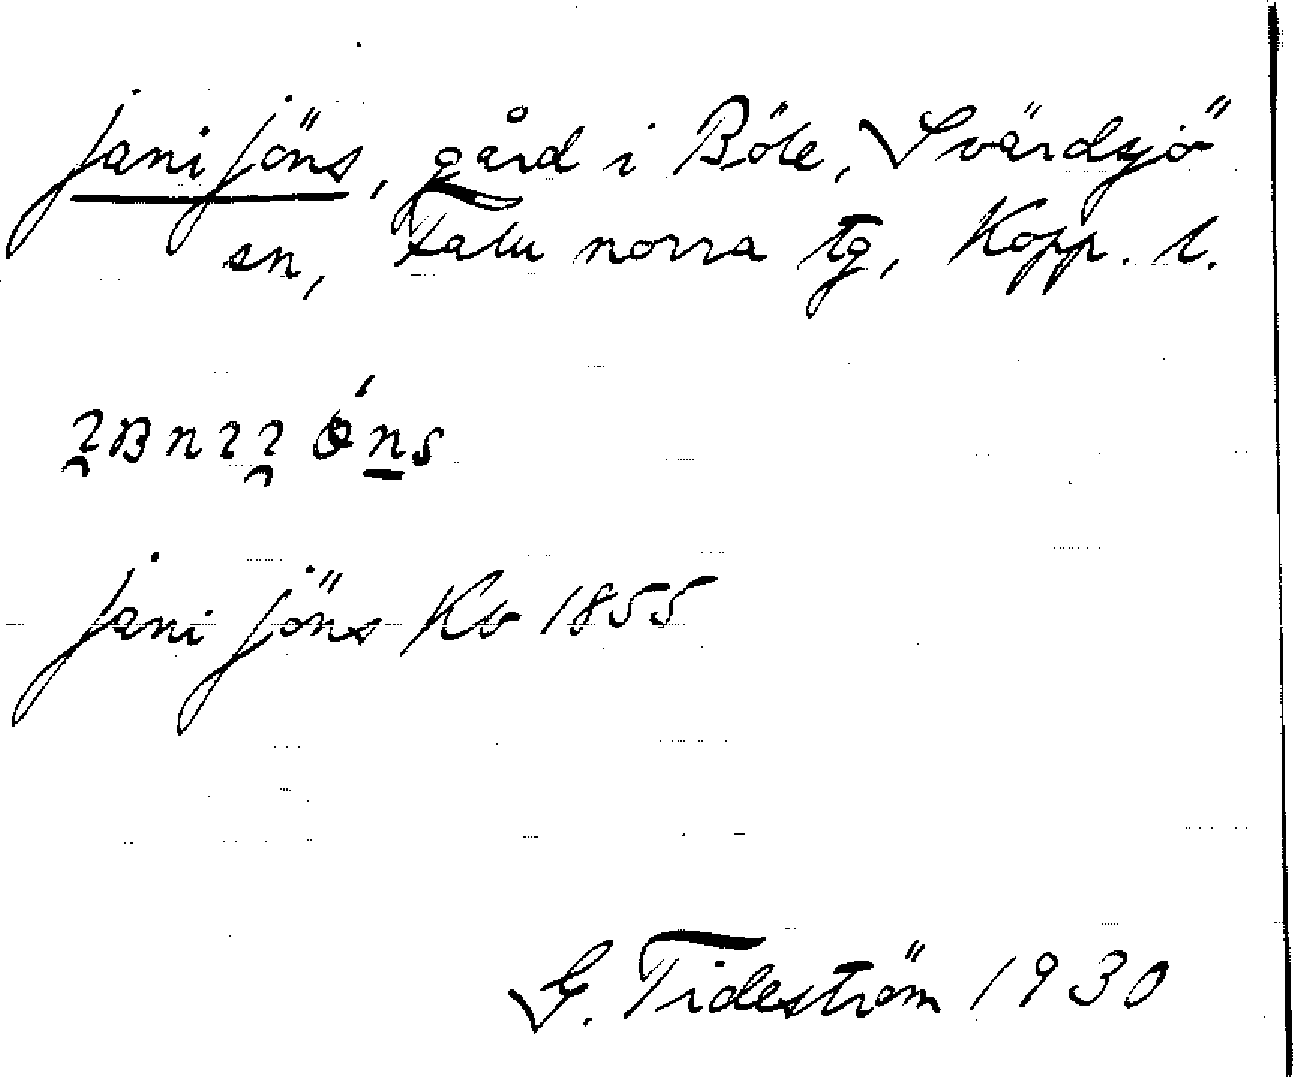 Jani Jöns, gård i Böle, Svärdsjö
sn, Falu norra tg, Kopp. l.
Jani Jöns Kb 1855
G. Tideström 1930